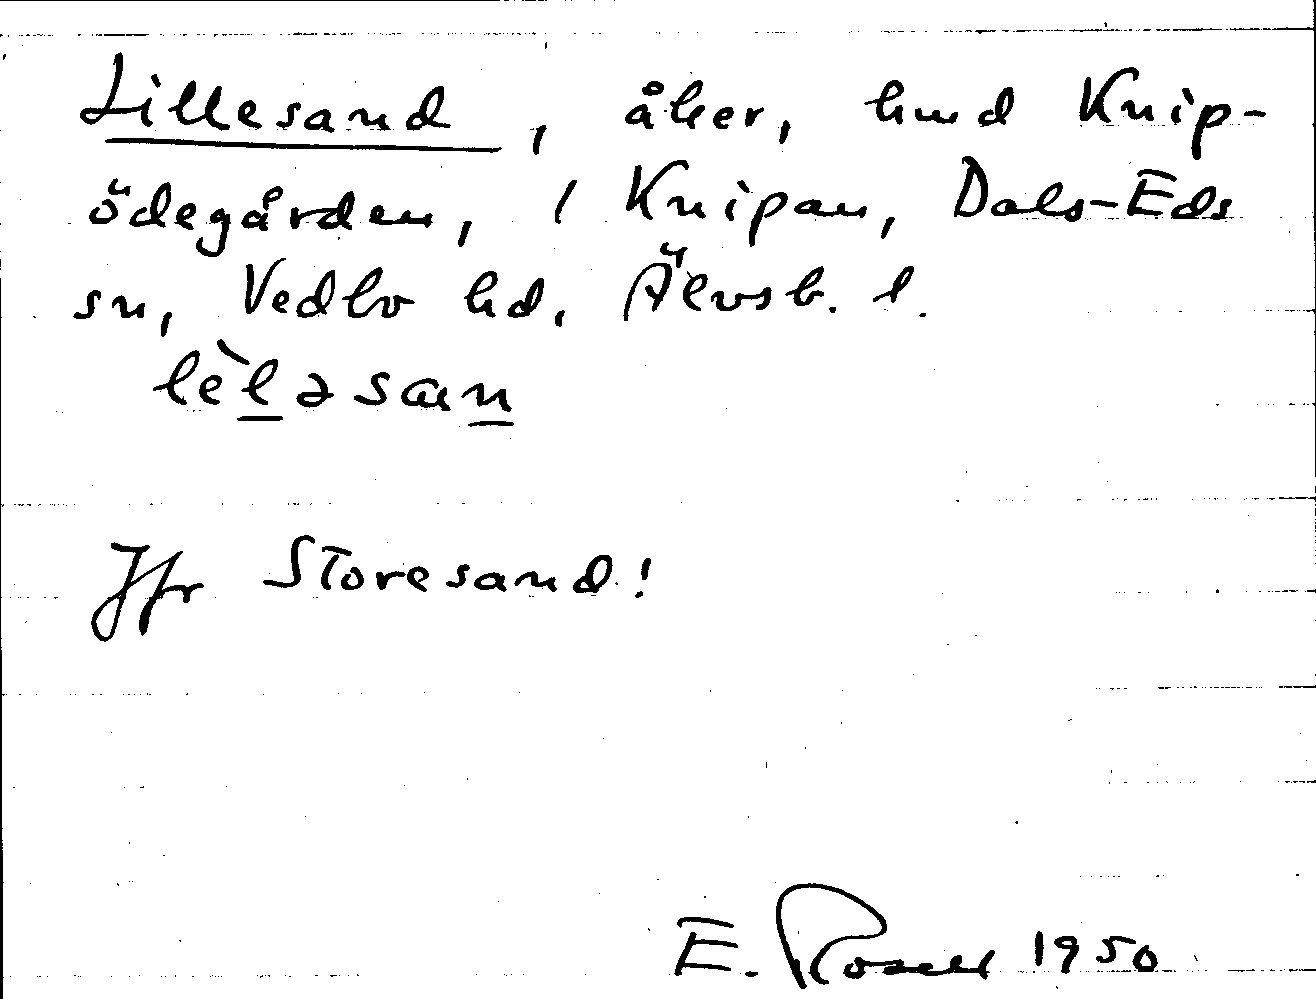 Lillesand, åker, hmd Knip-
ödegården, / Knipan, Dals-Eds
sn, Vedbo hd, Älvsb. l.
lèləsan
Jfr Storesand!
E. Rosell 1950